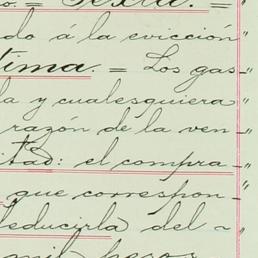 o. = Sexta. =
do á la evicción
tima. = Los gas-"
la y cualesquiera
razón de la ven-"
itad: el compra-"
que correspon-"
deducirla del -"
mil pesos